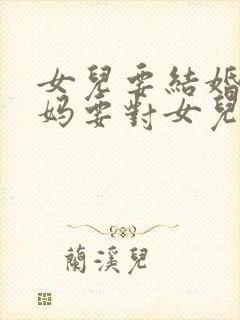 女兒要結婚
妈要對女兒
蘭溪兒